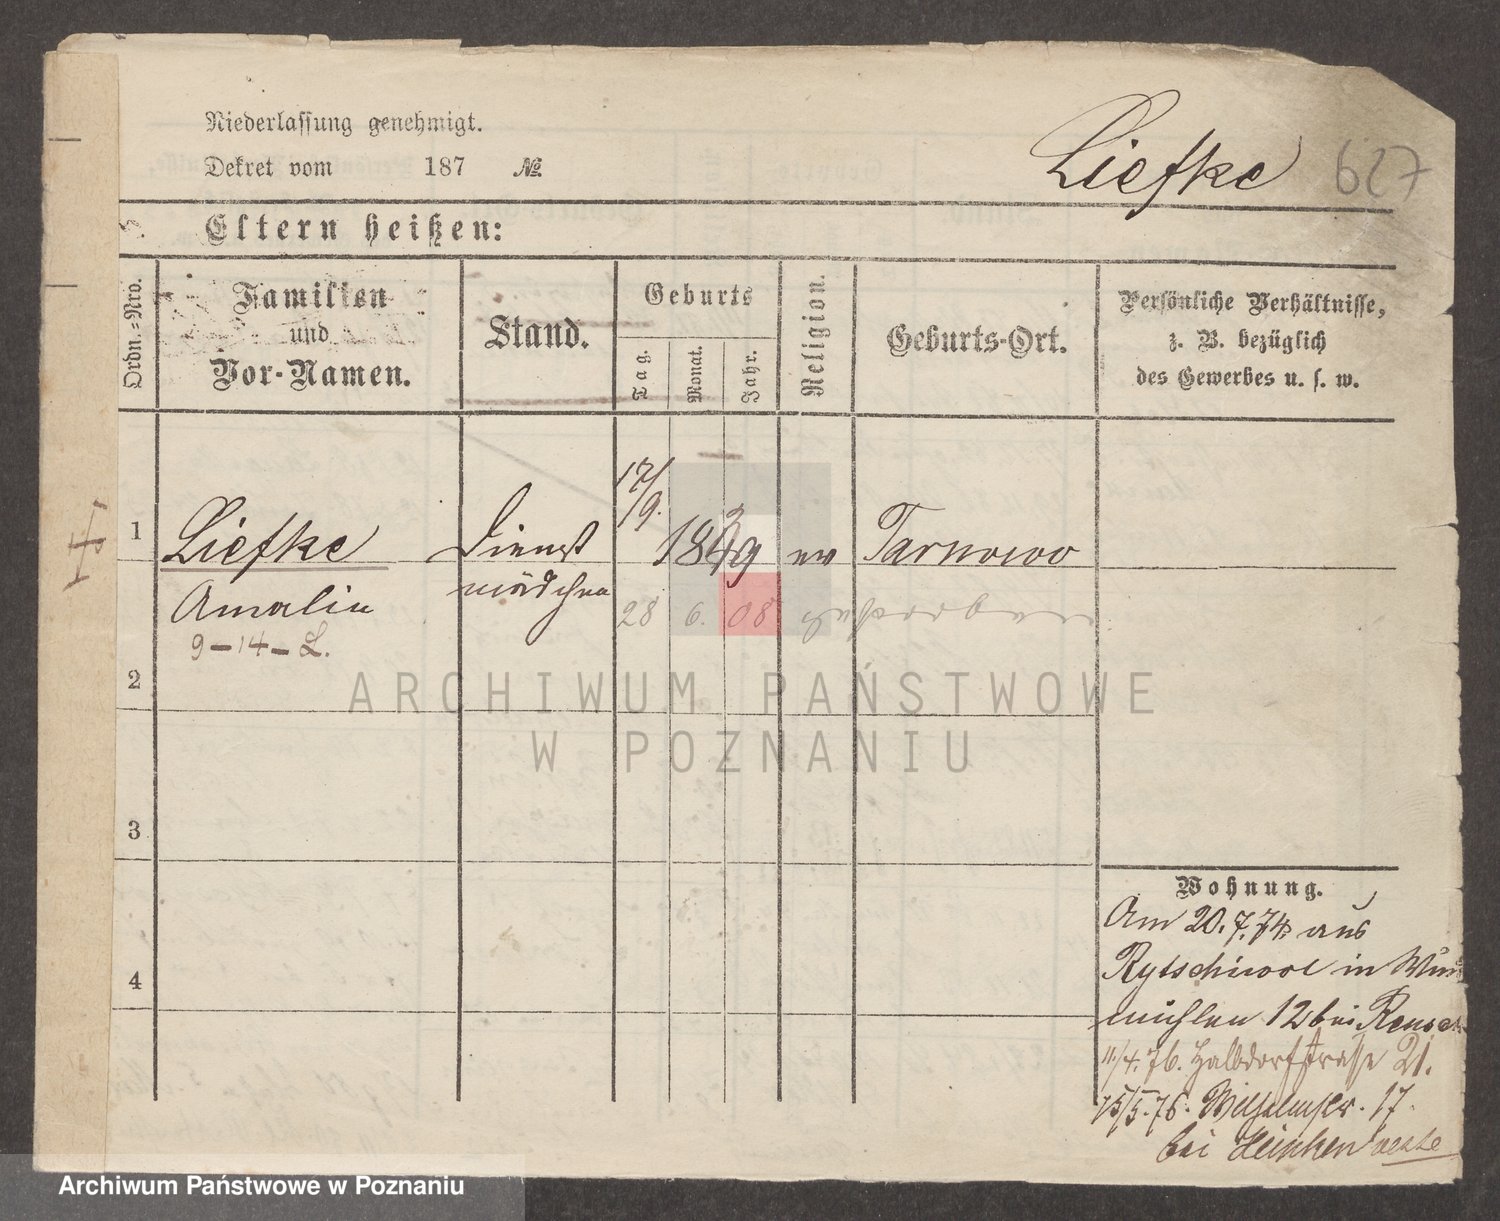 Niederlassung genehmigt.
Dekret vom 187 №
Liefke 627
Eltern heißen:
Ordn.-Nro.
Familien
und
Vor-Namen.
Stand.
Geburts
Tag.
Monat.
Jahr.
Religion.
Geburts-Ort.
Persönliche Verhältnisse,
z. B. bezüglich
des Gewerbes u. s. w.
17/9.
1 Liefke Dienst 1849 ev Tarnowo
Amalie mädchen
28 6. 08
9-14-L.
2
3
4
Wohnung.
Am 20.7.74 aus
Rytschiwol in
mühlen 12 bei
11/4.76. Halbdorfstrasse 21.
15/5.76. Wilhelmstr. 17.
bei
ARCHIWUM PAŃSTWOWE
W POZNANIU
Archiwum Państwowe w Poznaniu